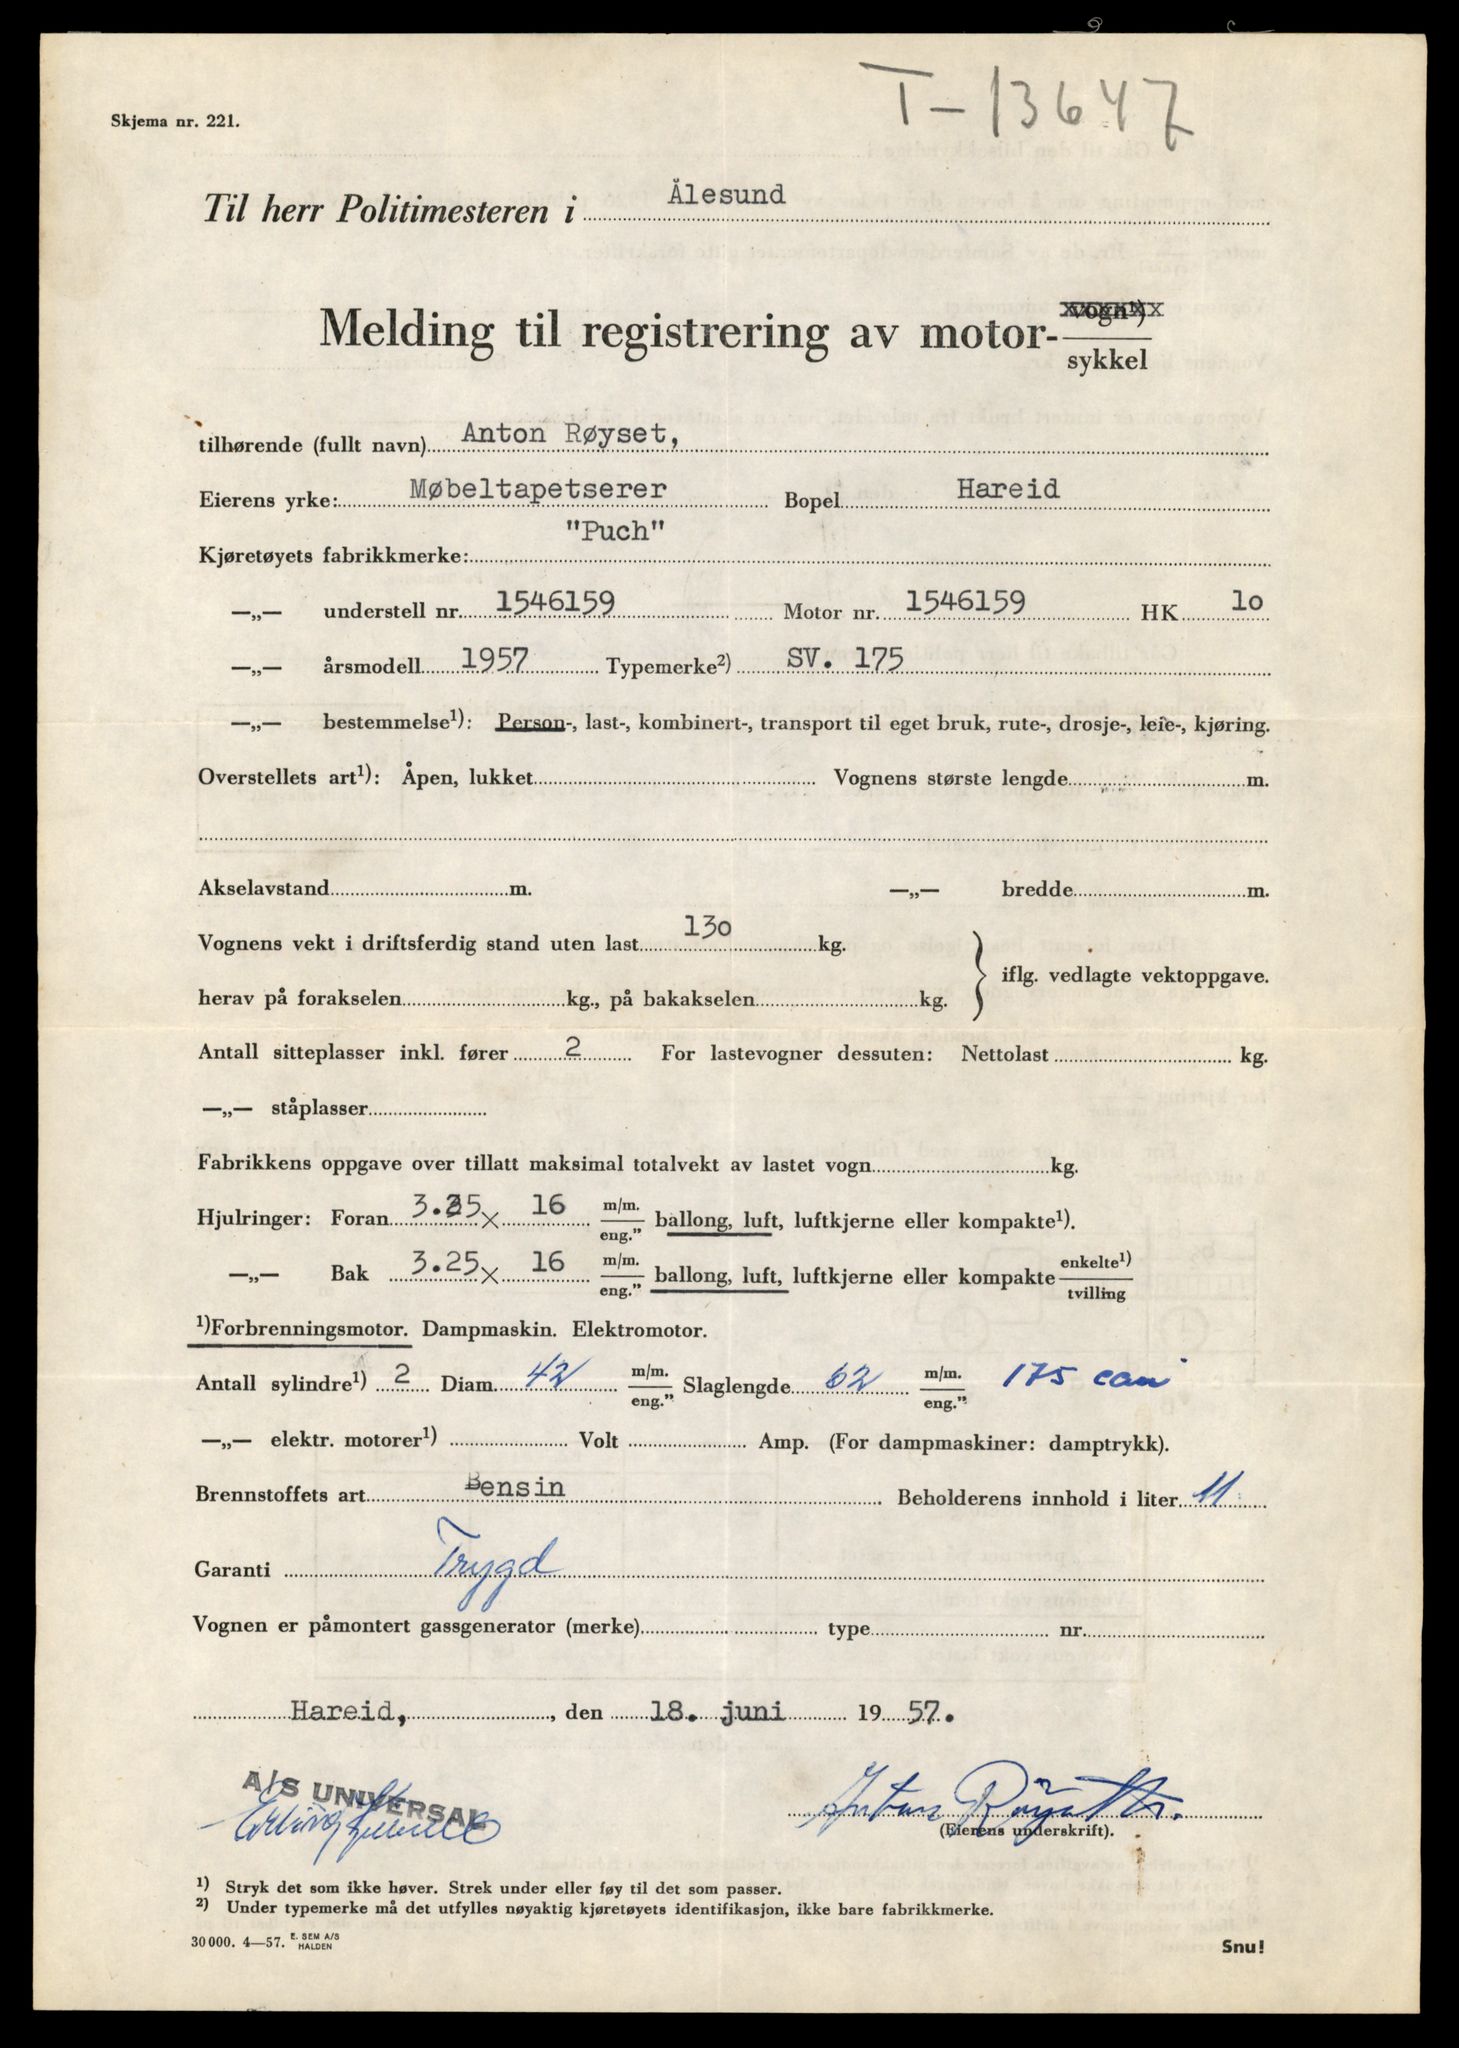 T-13647
Skjema nr. 221.
Til herr Politimesteren i Ålesund
Melding til registrering av motor- vogn¹) sykkel
tilhørende (fullt navn) Anton Røyset,
Eierens yrke: Møbeltapetserer Bopel Hareid
Kjøretøyets fabrikkmerke: "Puch"
—„— understell nr. 1546159 Motor nr. 1546159 HK 1o
—„— årsmodell 1957 Typemerke²) SV. 175
—„— bestemmelse¹): Person-, last-, kombinert-, transport til eget bruk, rute-, drosje-, leie-, kjøring.
Overstellets art¹): Åpen, lukket Vognens største lengde m.
Akselavstand m. —„— bredde m.
Vognens vekt i driftsferdig stand uten last 13o kg.
herav på forakselen kg., på bakakselen kg. iflg. vedlagte vektoppgave.
Antall sitteplasser inkl. fører 2 For lastevogner dessuten: Nettolast kg.
—„— ståplasser
Fabrikkens oppgave over tillatt maksimal totalvekt av lastet vogn kg.
Hjulringer: Foran 3.25 × 16 m/m. eng." ballong, luft, luftkjerne eller kompakte¹).
—„— Bak 3.25 × 16 m/m. eng." ballong, luft, luftkjerne eller kompakte enkelte¹) tvilling
¹)Forbrenningsmotor. Dampmaskin. Elektromotor.
Antall sylindre¹) 2 Diam. 42 m/m. eng." Slaglengde 62 m/m. eng." 175 ccm
—„— elektr. motorer¹) Volt Amp. (For dampmaskiner: damptrykk).
Brennstoffets art Bensin Beholderens innhold i liter 11
Garanti Trygd
Vognen er påmontert gassgenerator (merke) type nr.
Hareid, , den 18. juni 19 57.
A/S UNIVERSAL
Erling
Anton Røyset
(Eierens underskrift).
¹) Stryk det som ikke høver. Strek under eller føy til det som passer.
²) Under typemerke må det utfylles nøyaktig kjøretøyets identifikasjon, ikke bare fabrikkmerke.
30 000. 4—57. E. SEM A/S HALDEN
Snu!